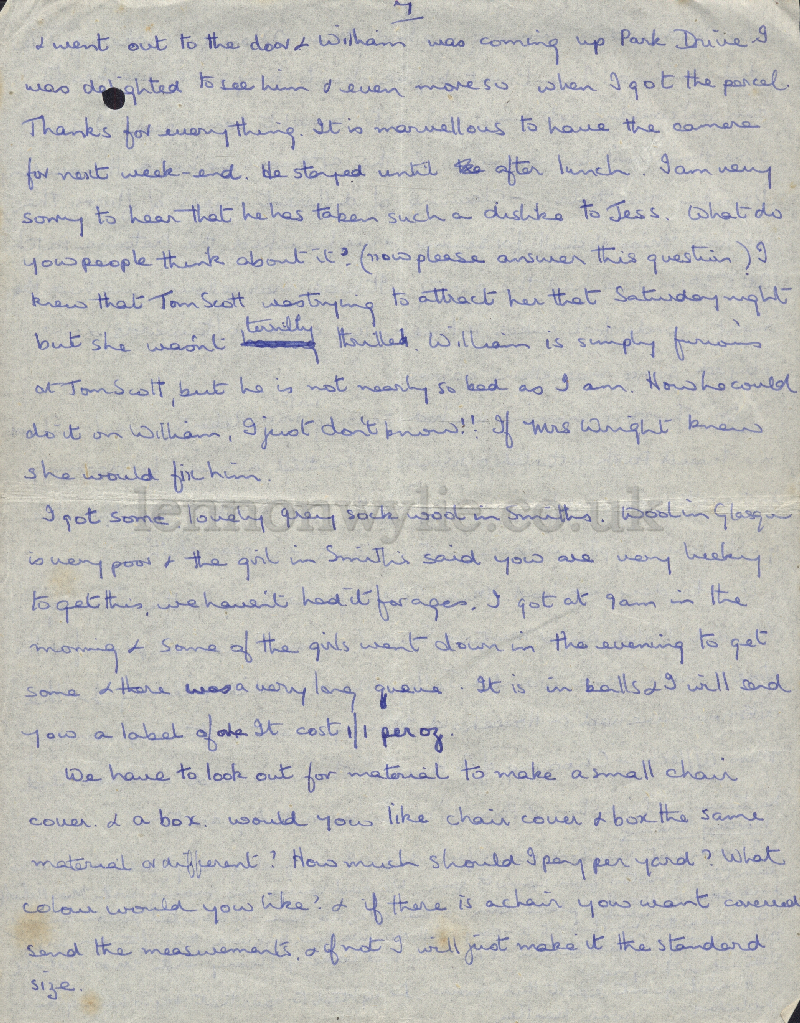 7
& went out to the door & William was coming up Park Drive I
was delighted to see him & even more so when I got the parcel.
Thanks for everything. It is marvellous to have the camera
for next week-end. He stayed until after lunch. I am very
sorry to hear that he has taken such a dislike to Jess. What do
you people think about it? (now please answer this question) I
knew that Tom Scott was trying to attract her that Saturday night
but she wasn't terribly thrilled. William is simply furious
at Tom Scott, but he is not nearly so bad as I am. How he could
do it on William, I just don't know!! If Mrs Wright knew
she would fix him.
lennonwylie.co.uk
I got some lovely grey sock wool in Smiths. Wool in Glasgow
is very poor & the girl in Smith's said you are very lucky
to get this, we haven't had it for ages. I got at 9am in the
morning & some of the girls went down in the evening to get
some & there was a very long queue. It is in balls & I will send
you a label of one It cost 1/1 per oz.
We have to look out for material to make a small chair
cover. & a box. would you like chair cover & box the same
material or different? How much should I pay per yard? What
colour would you like? & if there is a chair you want covered
send the measurements, & if not I will just make it the standard
size.